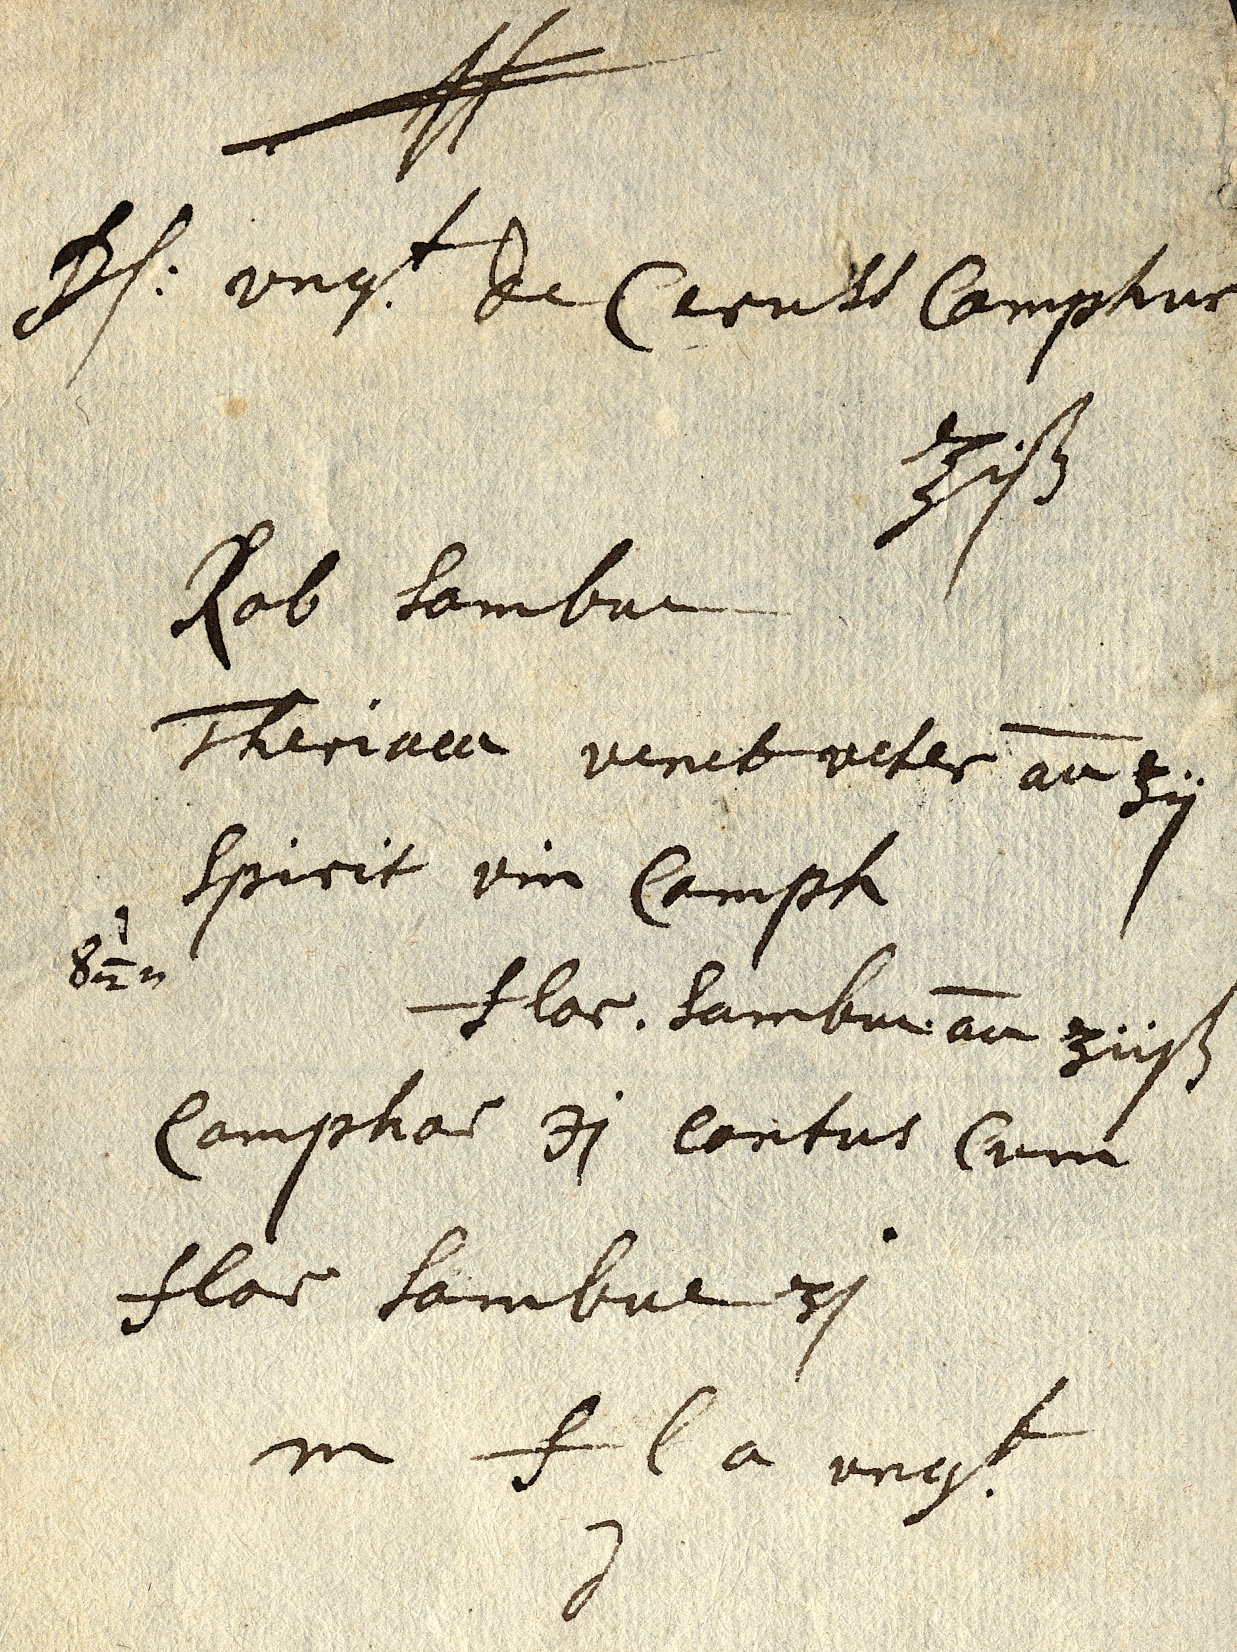 ℞: vngt. de Ceruss Camphor
℥iß
Rob Sambuc
Theriaca venet veter āa ʒij
Spirit vin Camph
8½
flor. Sambuc. āa ʒiiß
Camphor ℈j contus cum
flor Sambuc ʒj
m f l a vngt.